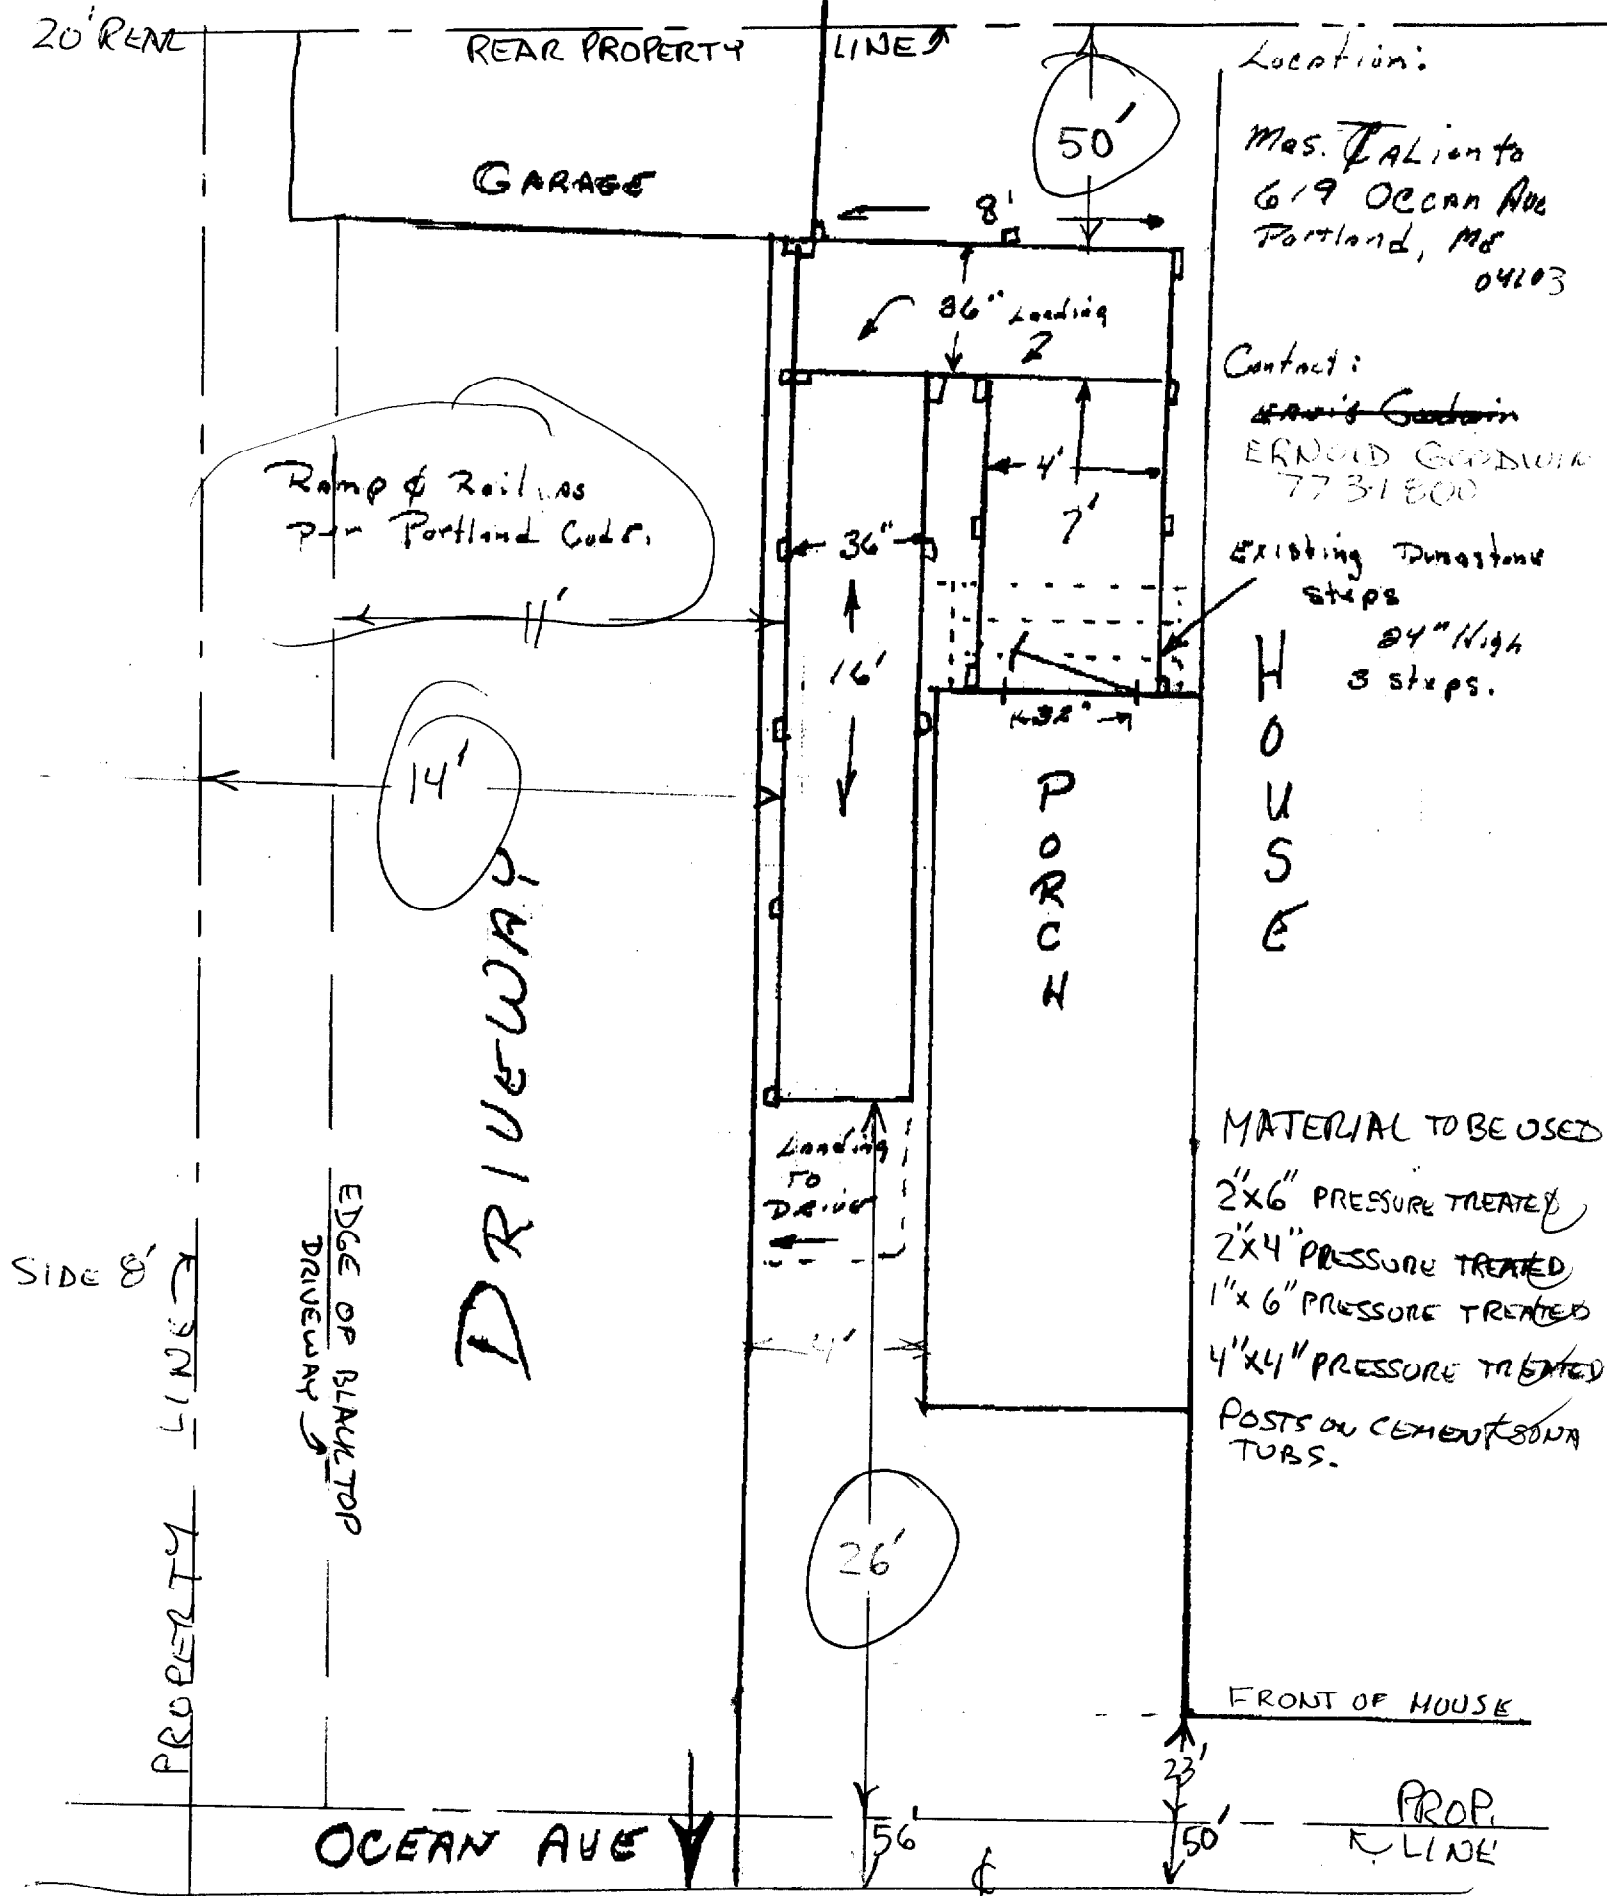 20' REAR
REAR PROPERTY LINE
Location:
50'
Mrs. Taliento
619 Ocean Ave
Portland, Me
04103
GARAGE
8'
36" Landing
2
Contact:
ERNOLD GOODWIN
773-1800
Ramp & Rail as
per Portland Code.
4'
7'
36"
Existing Dunastone
steps
24" High
3 steps.
11'
16'
32"
14'
HOUSE
PORCH
DRIVEWAY
Landing
TO
DRIVE
MATERIAL TO BE USED
2"x6" PRESSURE TREATED
2"x4" PRESSURE TREATED
1"x6" PRESSURE TREATED
4"x4" PRESSURE TREATED
POSTS ON CEMENT SONA
TUBS.
SIDE 8'
EDGE OF BLACKTOP
DRIVEWAY
PROPERTY LINE
4'
26'
FRONT OF HOUSE
23'
PROP.
LINE
OCEAN AVE
56'
50'
℄